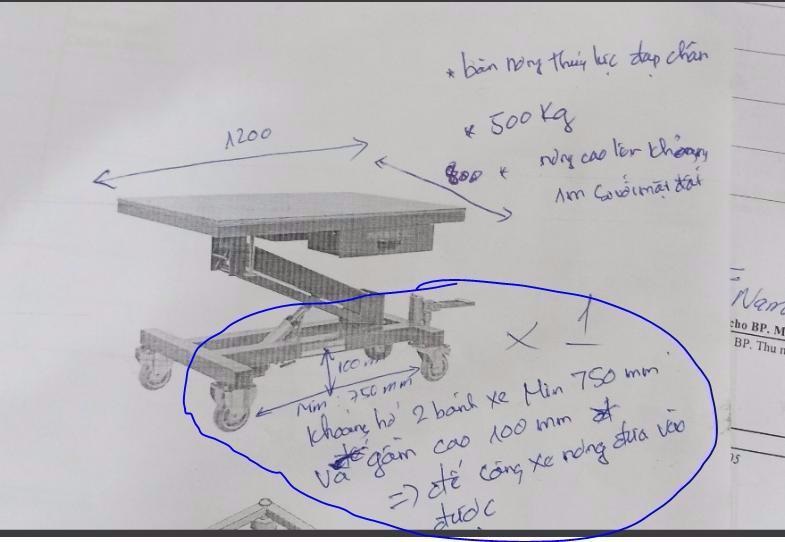 * bàn nâng thủy lực đạp chân
* 500 Kg
* nâng cao lên khoảng
1m so với mặt đất
1200
800
x 1
100 m
Min : 750 mm
Khoảng hở 2 bánh xe Min 750 mm
và gầm cao 100 mm
=> để càng xe nâng đưa vào
được
Nam
cho BP. M
BP. Thu n